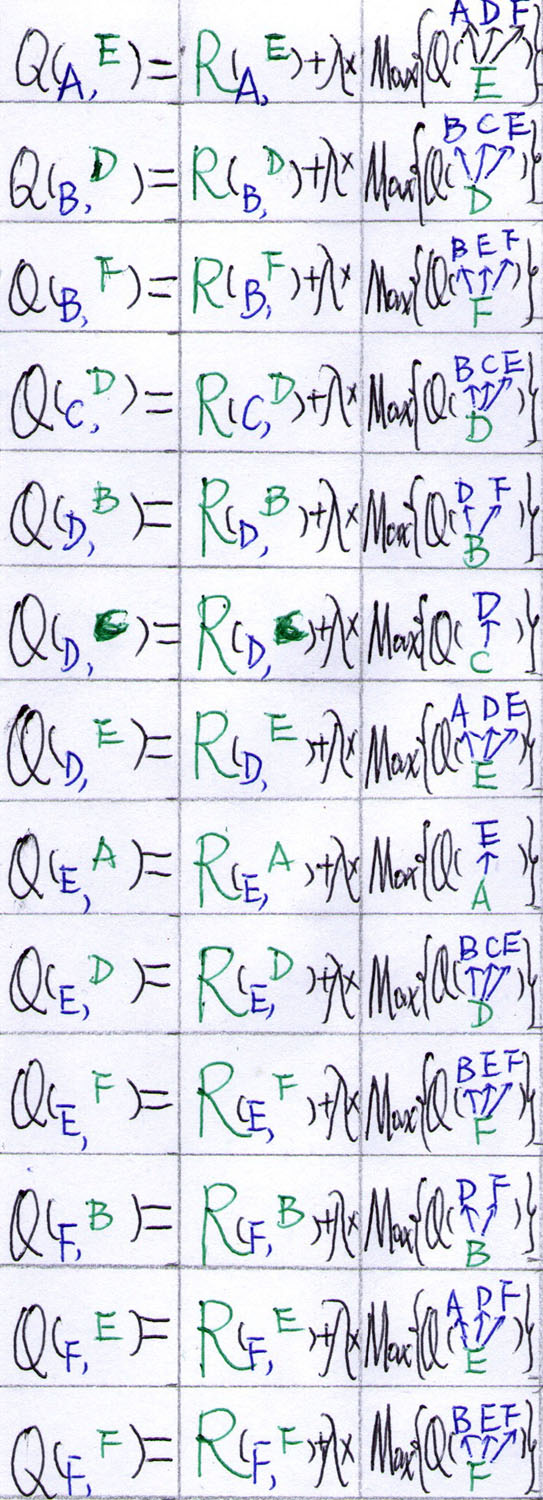 Q(A, E) = R(A, E) + λ× Max{Q(E → A D F)}
Q(B, D) = R(B, D) + λ× Max{Q(D → B C E)}
Q(B, F) = R(B, F) + λ× Max{Q(F → B E F)}
Q(C, D) = R(C, D) + λ× Max{Q(D → B C E)}
Q(D, B) = R(D, B) + λ× Max{Q(B → D F)}
Q(D, C) = R(D, C) + λ× Max{Q(C → D)}
Q(D, E) = R(D, E) + λ× Max{Q(E → A D E)}
Q(E, A) = R(E, A) + λ× Max{Q(A → E)}
Q(E, D) = R(E, D) + λ× Max{Q(D → B C E)}
Q(E, F) = R(E, F) + λ× Max{Q(F → B E F)}
Q(F, B) = R(F, B) + λ× Max{Q(B → D F)}
Q(F, E) = R(F, E) + λ× Max{Q(E → A D F)}
Q(F, F) = R(F, F) + λ× Max{Q(F → B E F)}